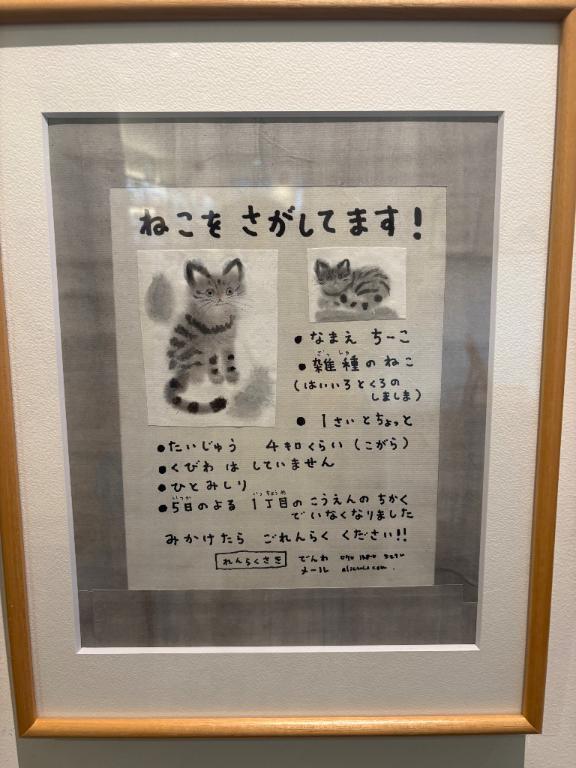 ねこを さがしてます!
● なまえ ちーこ
● 雑種のねこ
ざっしゅ
(はいいろとくろの
しましま)
● 1さいとちょっと
● たいじゅう 4キロくらい (こがら)
● くびわ は していません
● ひとみしり
● 5日のよる 1丁目のこうえんの ちかく
いつか いっちょうめ
でいなくなりました
みかけたら ごれんらく ください!!
れんらくさき でんわ
メール